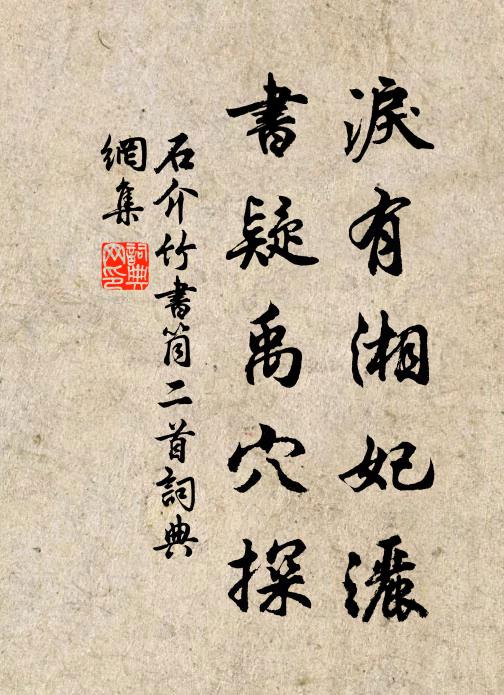 淚有湘妃灑
書疑禹穴探
石介竹書筒二首詞典
網集
詞典
网印